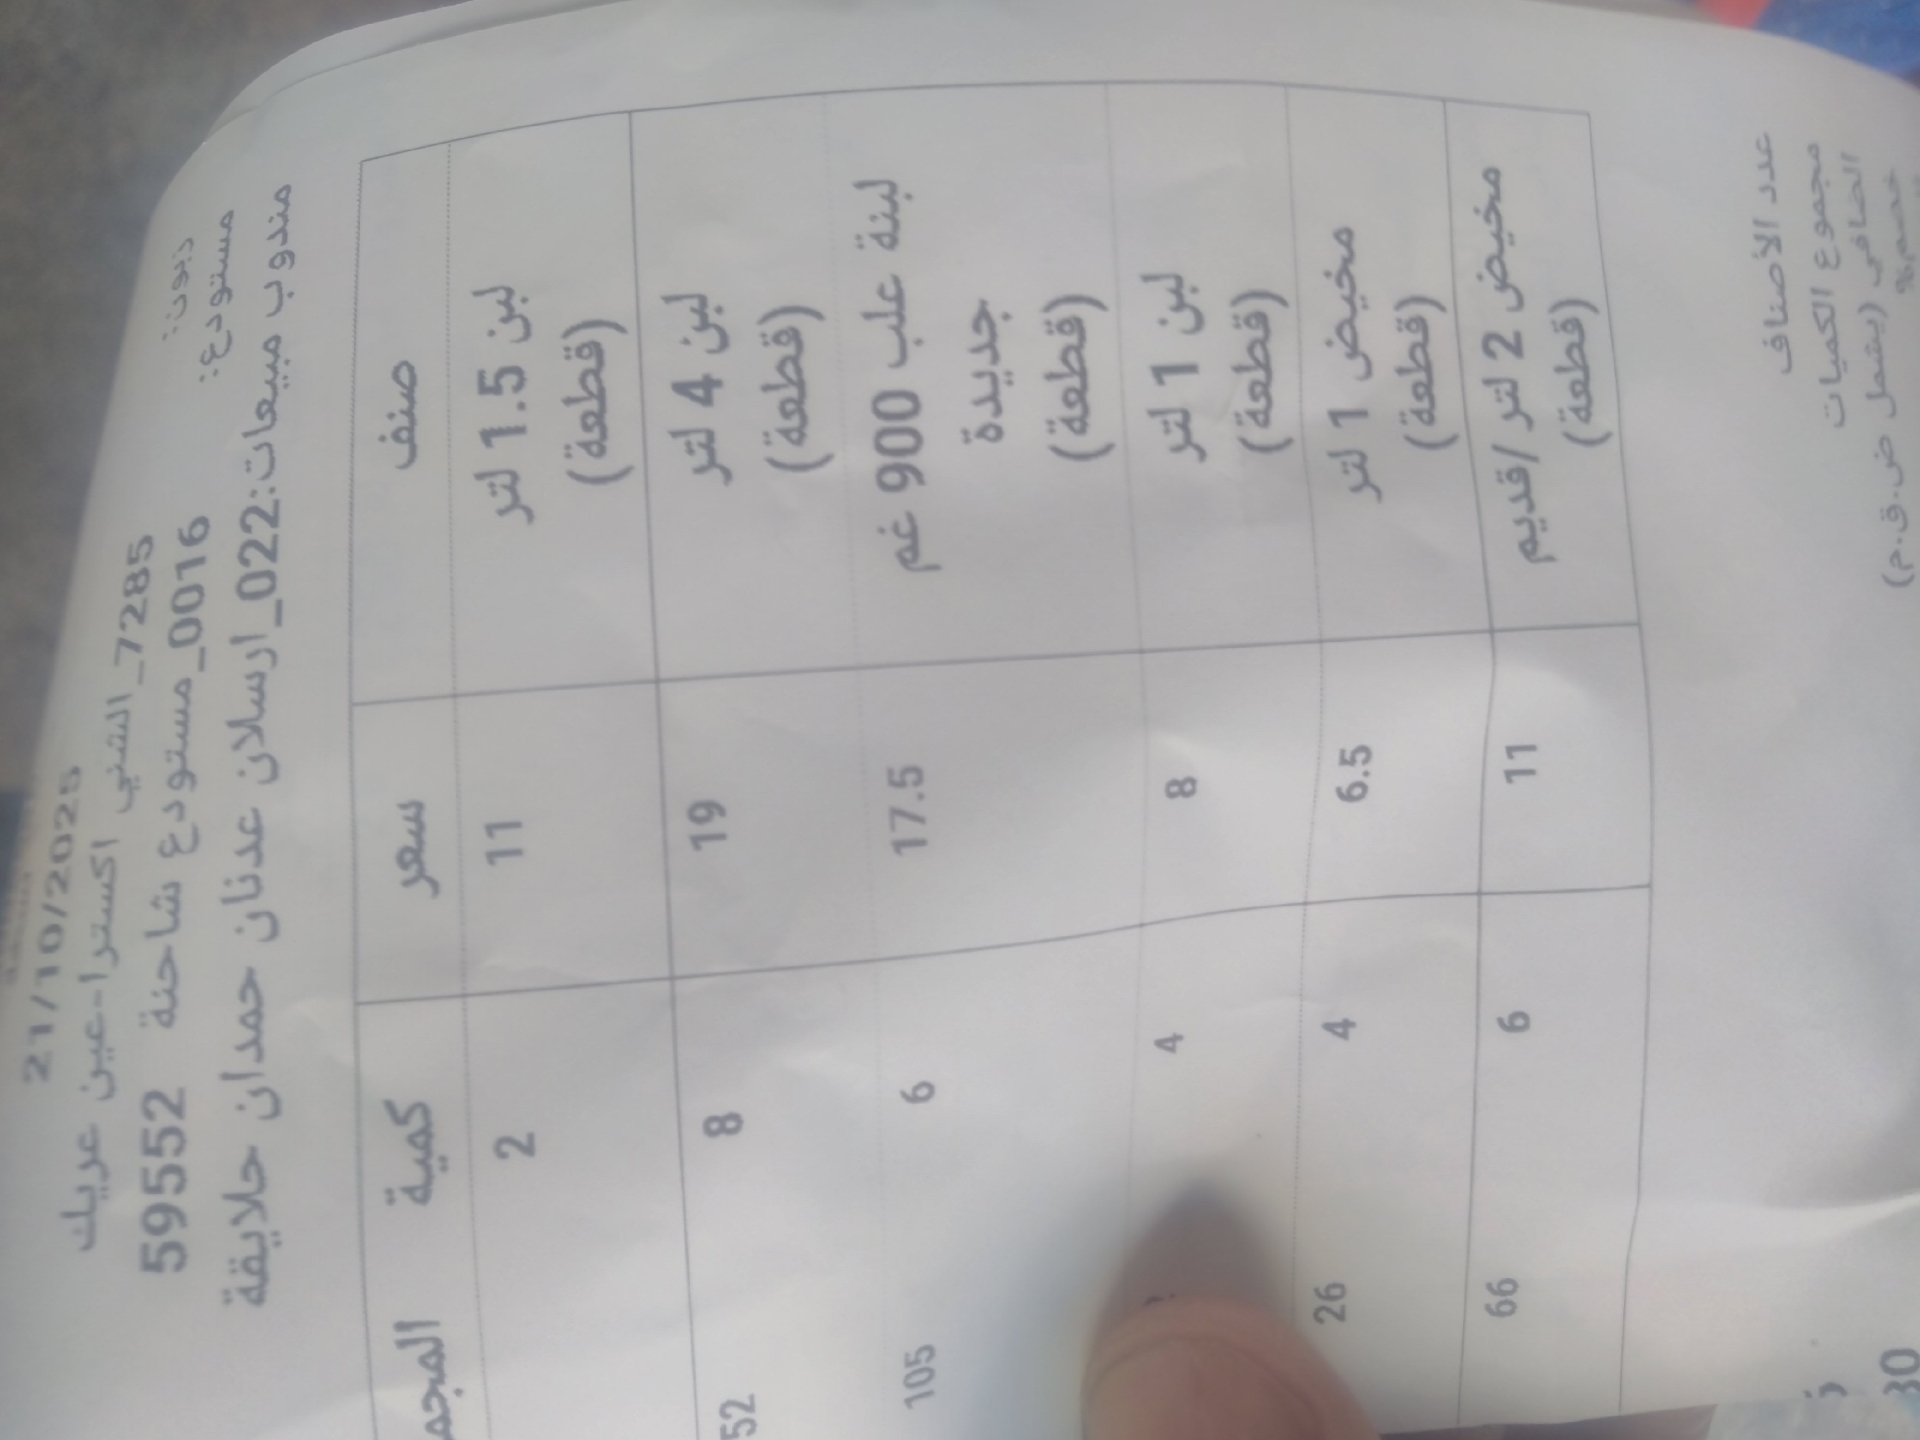 21/10/2025
زبون: 7285_الشني اكسترا-عين عريك
مستودع: 0016_مستودع شاحنة 59552
مندوب مبيعات:022_ارسلان عدنان حمدان حلايقة
صنف سعر كمية المجم
لبن 1.5 لتر 11 2
(قطعة)
لبن 4 لتر 19 8 52
(قطعة)
لبنة علب 900 غم 17.5 6 105
جديدة
(قطعة)
لبن 1 لتر 8 4
(قطعة)
مخيض 1 لتر 6.5 4 26
(قطعة)
مخيض 2 لتر /قديم 11 6 66
(قطعة)
عدد الأصناف
مجموع الكميات
الصافي (يشمل ض.ق.م) 30
خصم%